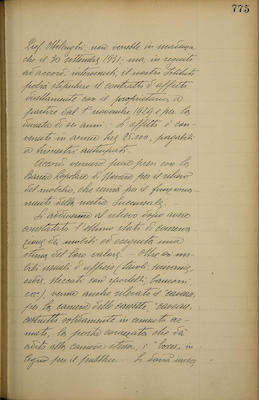 775
che il 30 settembre 1931; ma, in seguito
ad accordi intervenuti, il nostro Istituto
potrà stipulare il contratto d'affitto
direttamente con il proprietario, a
partire dal 1° novembre 1929 e per la
durata di sei anni. L'affitto è con-
venuto in annue lire 25.000, pagabili
a trimestri anticipati.
Accordi vennero pure presi con la
Banca Popolare di Novara per il rilievo
del mobilio, che servirà per il funziona-
mento della nostra Succursale.
Si addivenne al rilievo dopo avere
constatato l'ottimo stato di conserva-
zione dei mobili ed eseguita una
stima del loro valore. Oltre ai mo-
bili usuali d'ufficio (tavoli, scrivanie,
sedie, steccati con sportelli, banconi,
ecc.) venne anche rilevato il
per la camera delle cassette
costruita solidamente in cemento ar-
mato, la porta corazzata che dà
adito alla camera stessa, i boxes in
legno per il pubblico.